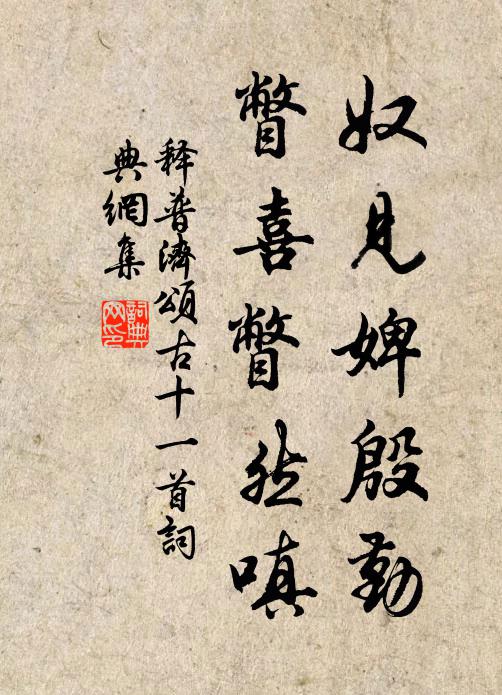 奴见婢殷勤
瞥喜瞥然嗔
释普濟頌古十一首詞
典網集
詞典网印